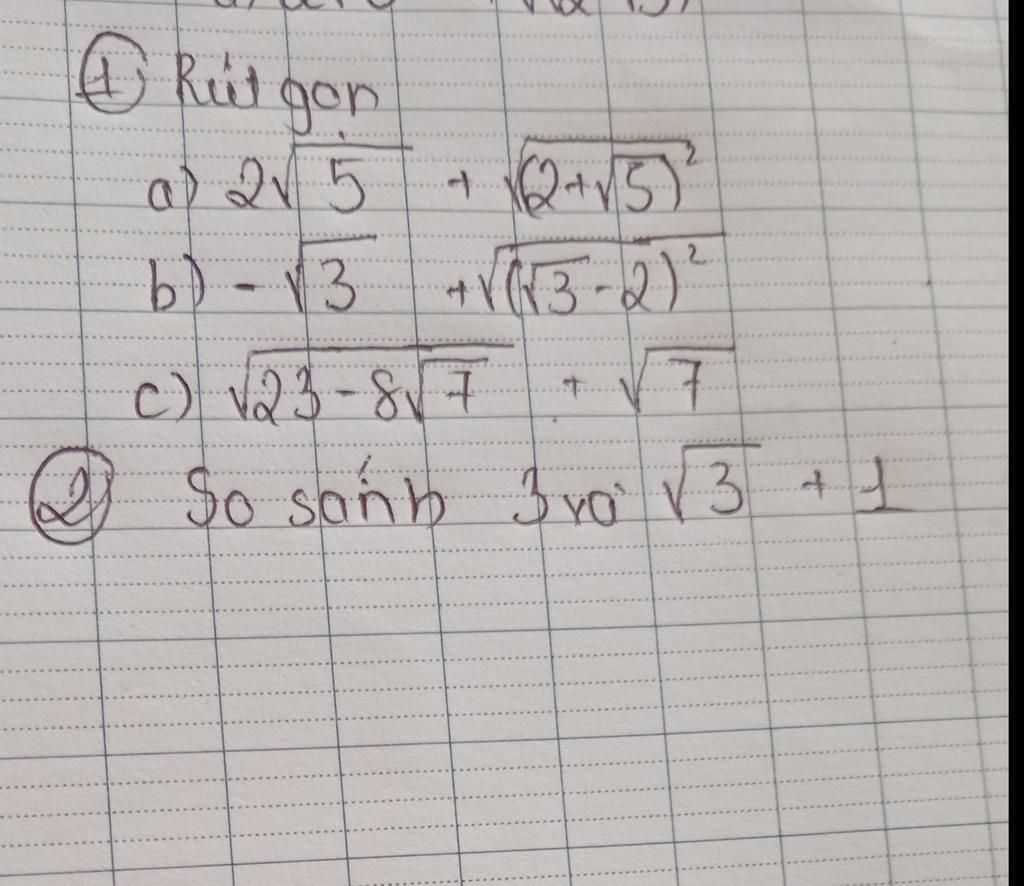 ① Rút gọn
a) 2√5 + √(2+√5)²
b) -√3 + √(√3-2)²
c) √23-8√7 + √7
② So sánh 3 và √3 + 1